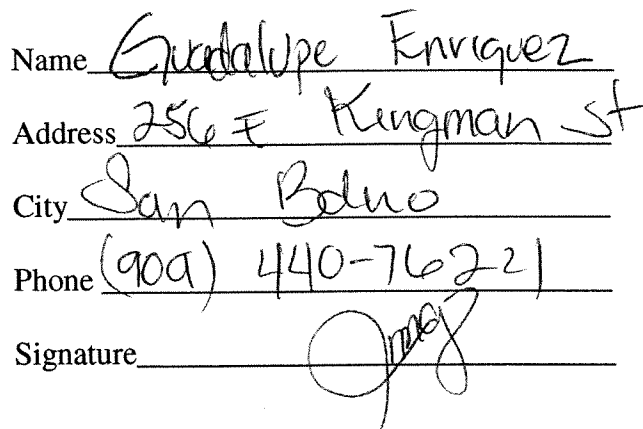 Name Guadalupe Enriquez
Address 256 E Kingman St
City San Bdno
Phone (909) 440-76221
Signature